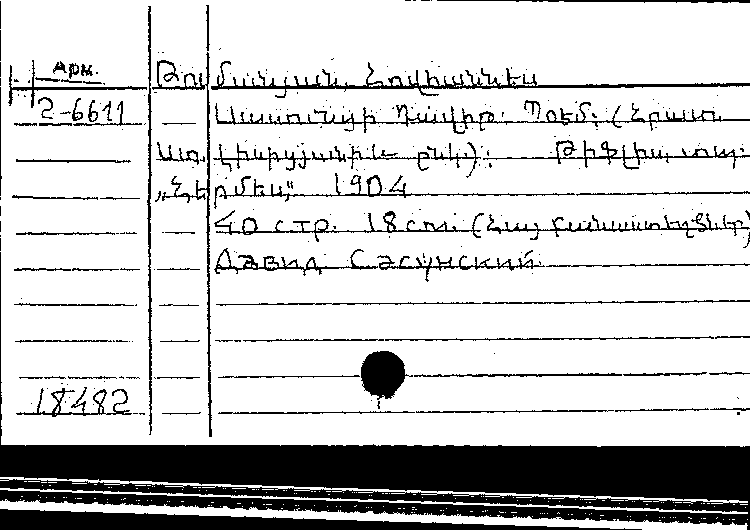 Арм.
2-6611
Թումանյան, Հովհաննես
— Սասունցի Դավիթ. Պոեմ. (Հրատ.
Թիֆլիս, տպ.
„Հերմես" 1904
40 стр. 18 см. (Հայ բանաստեղծներ)
Давид Сасунский
18482